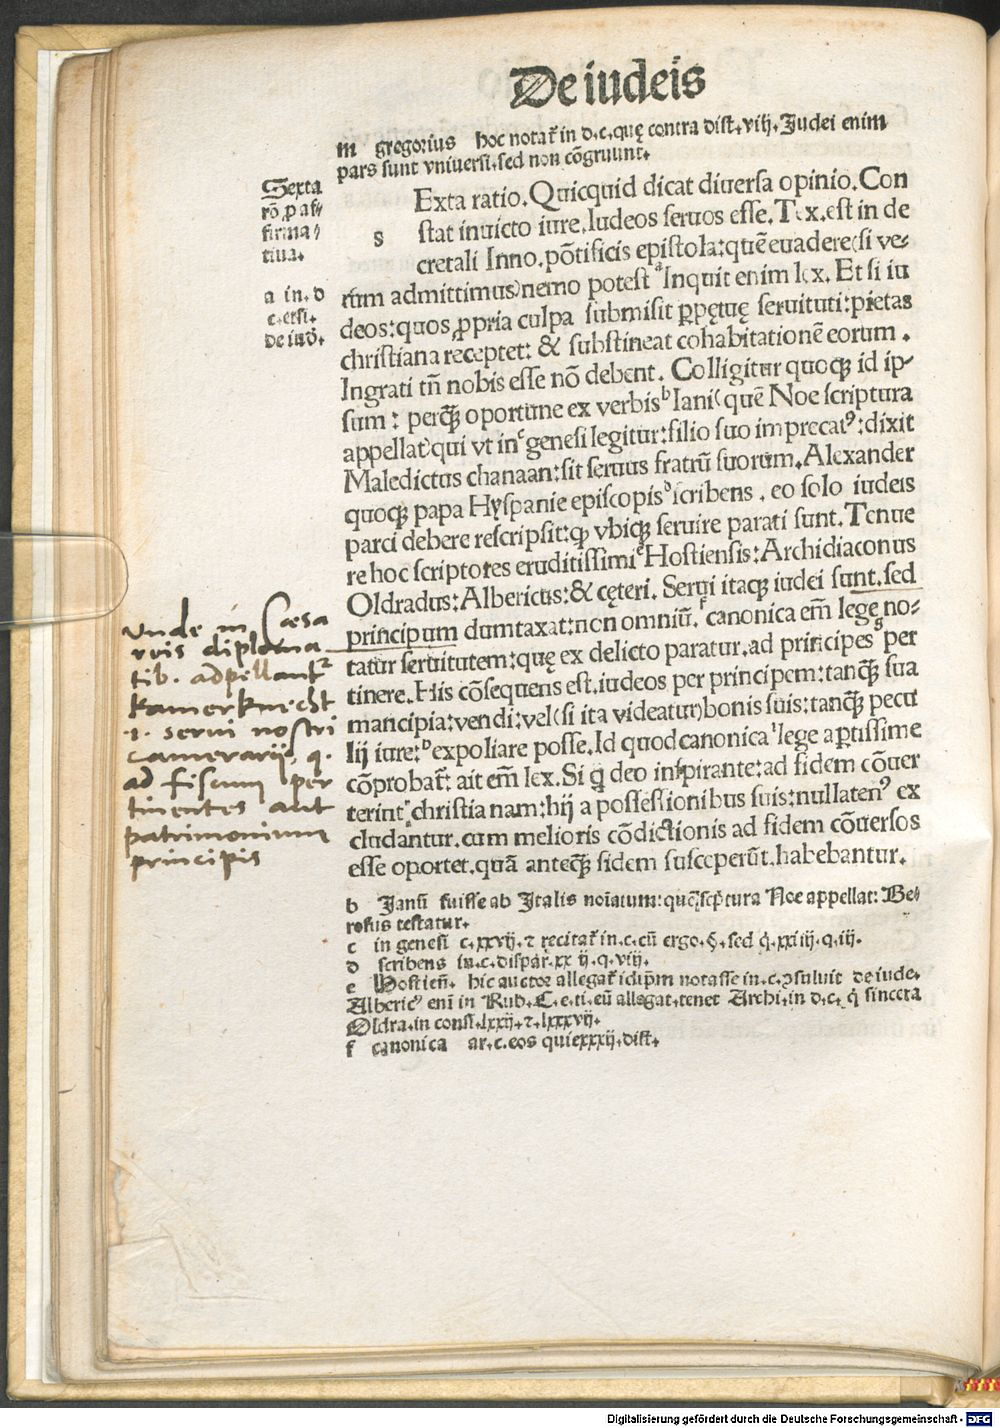 De iudeis
m gregorius hoc notat̄ in d.c.quę contra dist.viij.Judei enim
pars sunt vniuersi.sed non cōgruunt.
Sexta
rō.p af⸗
firma⸗
tiua.
a in.d
c.etsi.
de iud̄.
s
Exta ratio.Quicquid dicat diuersa opinio.Con
stat inuicto iure.Iudeos seruos esse.Tex.est in de
cretali Inno.pōtificis epistola:quē euadere(si ve⸗
rum admittimus)nemo potest ᵃInquit enim lex. Et si iu
deos:quos ꝓpria culpa submisit ꝑpętuę seruituti:pietas
christiana receptet: & substineat cohabitationē eorum .
Ingrati tñ nobis esse nō debent. Colligitur quoqꝫ id ip⸗
sum : perqꝫ oportune ex verbis ᵇIani(quē Noe scriptura
appellat)qui vt in ᶜgenesi legitur:filio suo imprecatꝰ:dixit
Maledictus chanaan:sit seruus fratrū suorum.Alexander
quoqꝫ papa Hyspanie episcopis ᵈscribens . eo solo iudeis
parci debere rescripsit:ꝙ vbiqꝫ seruire parati sunt.Tenue
re hoc scriptores eruditissimi ᵉHostiensis:Archidiaconus
Oldradus:Albericus:& cęteri. Serui itaqꝫ iudei sunt.sed
principum dumtaxat:non omniū. ᶠcanonica em̄ lege no⸗
tatur seruitutem:quę ex delicto paratur.ad principes ᵍper
tinere.His cōsequens est.iudeos per principem:tanqꝫ sua
mancipia:vendi:vel(si ita videatur)bonis suis:tanqꝫ pecu
lij iure: ʰexpoliare posse.Id quod canonica ⁱlege aꝑtissime
cōprobat̄: ait em̄ lex.Si q̇ deo inspirante:ad fidem cōuer
terint christianam:hij a possessionibus suis:nullatenꝰ ex
cludantur.cum melioris cōdictionis ad fidem cōuersos
esse oportet.quā anteqꝫ fidem susceperūt.habebantur.
vnde in Cæsa
reis diploma
tib. adpellantᵘʳ
kamerknecht
.i. serui nostri
camerarij, q.
ad fiscum per
tinentes aut
patrimonium
principis
b Janū fuisse ab Italis noīatum:quē scp̄tura Noe appellat: Be⸗
rosus testatur.
c in genesi c.xxvij.⁊ recitat̄ in.c.cū ergo.§.sed q̇.xxiiij.q.iij.
d scribens in.c.dispar.xxiij.q.viij.
e Hostien̄. hic auctor allegat̄ idip̄m notasse in.c.ↄsuluit de iude.
Albericꝰ eni in Rub.C.e.ti.eū allegat.tenet Archi.in d.c. q̇ sincera
Oldra.in consi.lxxij.⁊.lxxxvij.
f canonica ar.c.eos qui xxxij.dist.
Digitalisierung gefördert durch die Deutsche Forschungsgemeinschaft - DFG